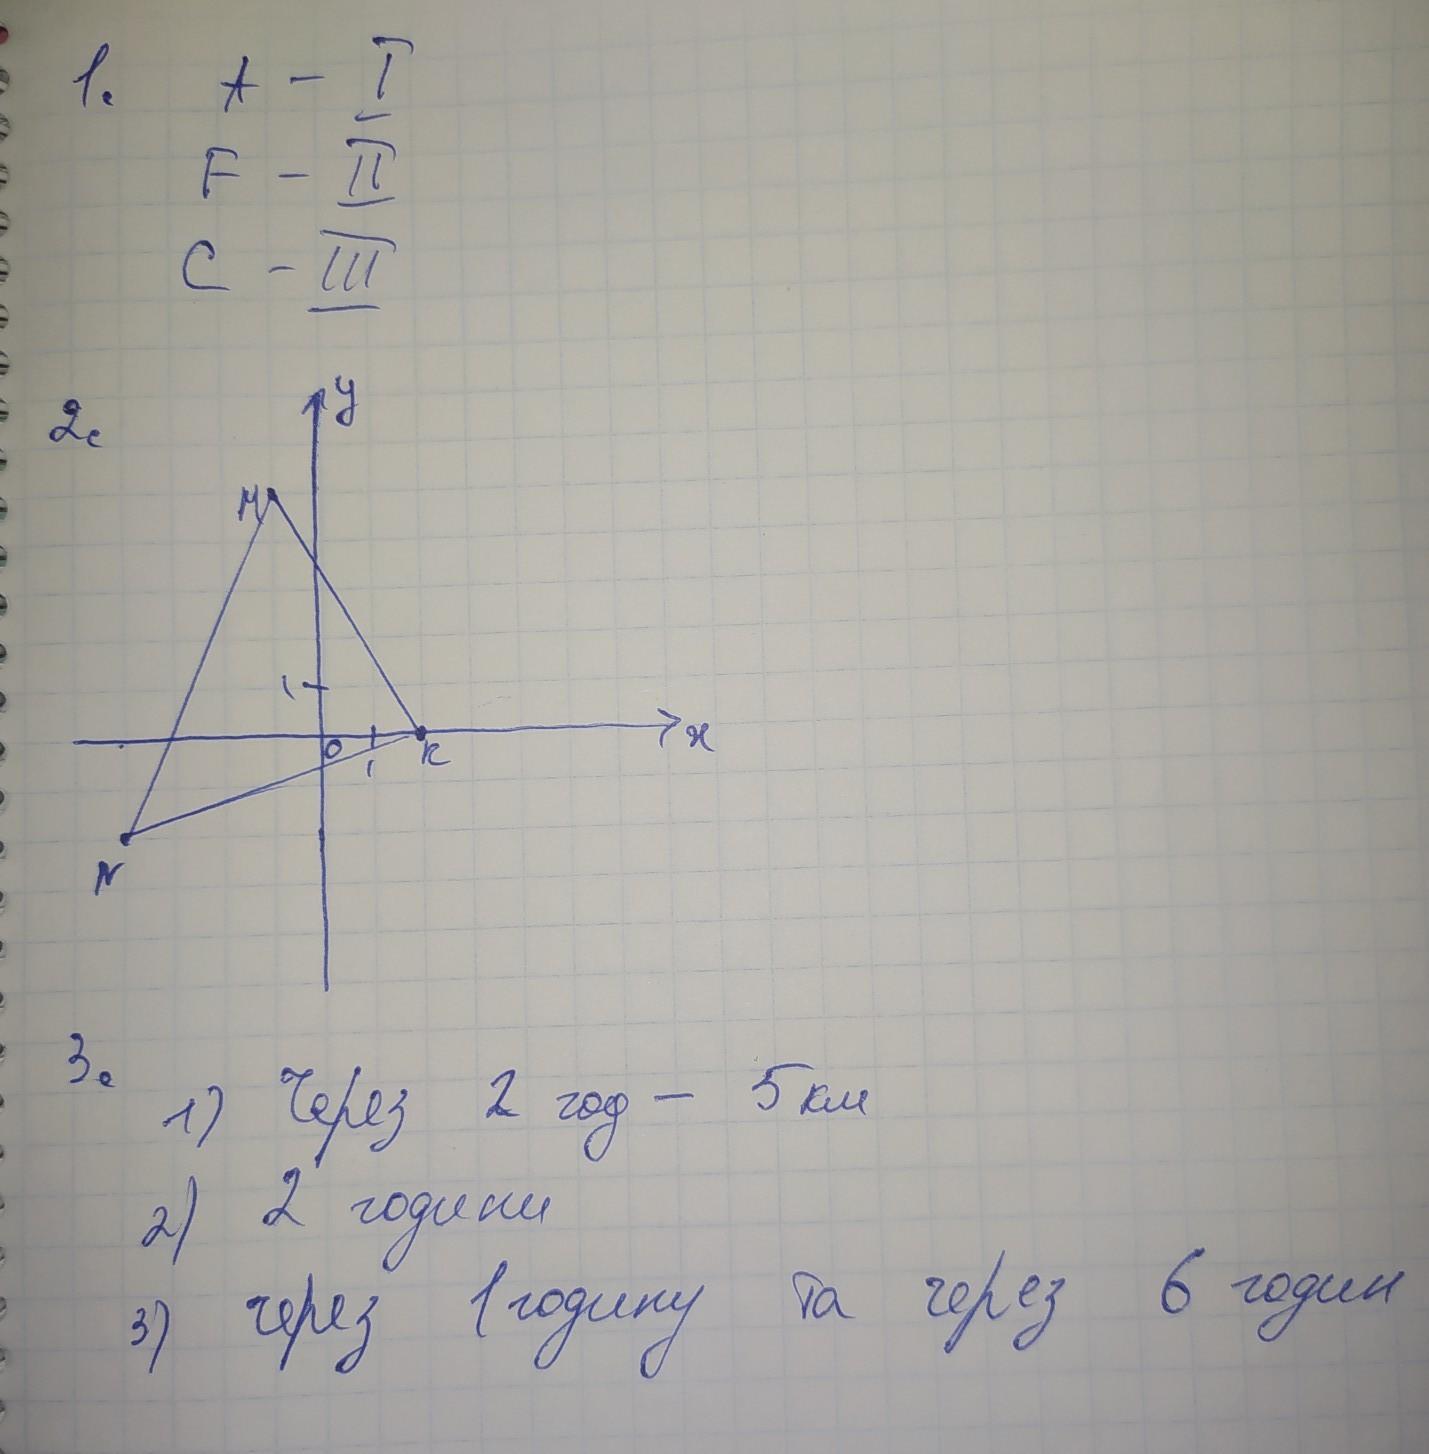 1. A - I
F - II
C - III
2.
y
M
1
0
1
K
x
N
3.
1) Через 2 год - 5 км
2) 2 години
3) через 1 годину та через 6 годин